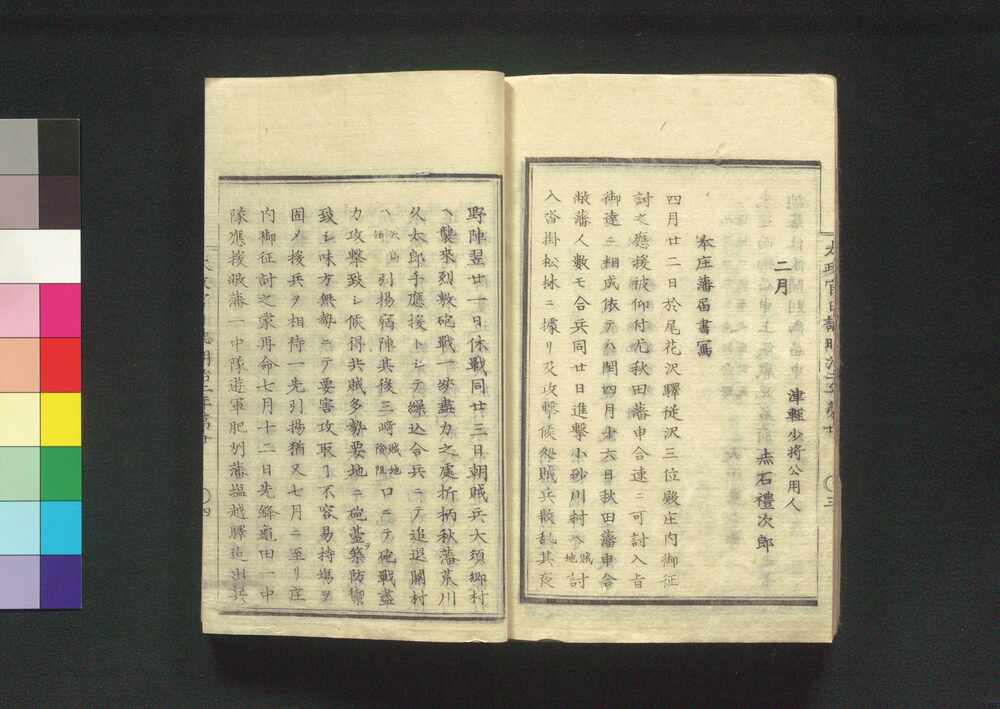 二月
津輕少將公用人
赤石禮次郎
本庄藩届書寫
四月廿二日於尾花沢驛従沢三位殿庄内御征
討之應援被仰付尤秋田藩申合速ニ可討入旨
御達ニ相成依テハ閏四月十六日秋田藩申合
敝藩人數モ合兵同廿日進擊小砂川村賊地ヘ討
入沓掛松林ニ據リ及攻擊候處賊兵散乱其夜
野陣翌廿一日休戰同廿三日朝賊兵大須郷村
ヘ襲來烈敷砲戰一統盡力之處折柄秋藩荒川
久太郎手應援トシテ繰込合兵ニテ追退關村
ヘ引揚宿陣其後三崎賊地險阻口ニテ砲戰盡
力攻擊致シ候得共賊多勢要地ニ砲臺築防禦
致シ味方無勢ニテ要害攻取リ不容易持場ヲ
固メ援兵ヲ相待一先引揚猶又七月ニ至リ庄
内御征討之蒙再命七月十二日先鋒龜田一中
隊應援敝藩一中隊遊軍肥別藩塩越驛迠出兵
太政官日誌明治二年第十
三
四